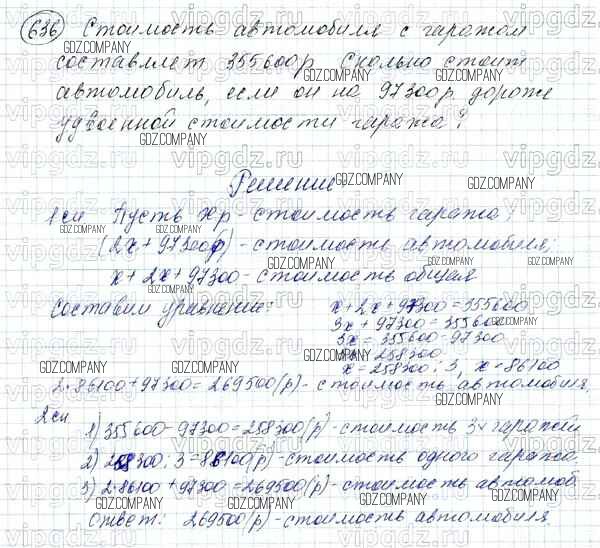 636 Стоимость автомобиля с гаражом
составляет 355600р. Сколько стоит
автомобиль, если он на 97300р. дороже
удвоенной стоимости гаража?
Решение
1 сп Пусть Xр - стоимость гаража;
(2x + 97300р) - стоимость автомобиля;
x + 2x + 97300 - стоимость общая
Составим уравнение:
x + 2x + 97300 = 355600
3x + 97300 = 355600
3x = 355600 - 97300
258300
x = 258300 : 3, x = 86100
2 · 86100 + 97300 = 269500 (р) - стоимость автомобиля.
2сп
1) 355600 - 97300 = 258300 (р) - стоимость 3х гаражей
2) 258300 : 3 = 86100 (р) - стоимость одного гаража.
3) 2 · 86100 + 97300 = 269500 (р) - стоимость автомоб
Ответ: 269500 (р) - стоимость автомобиля.
GDZ.COMPANY
vipgdz.ru